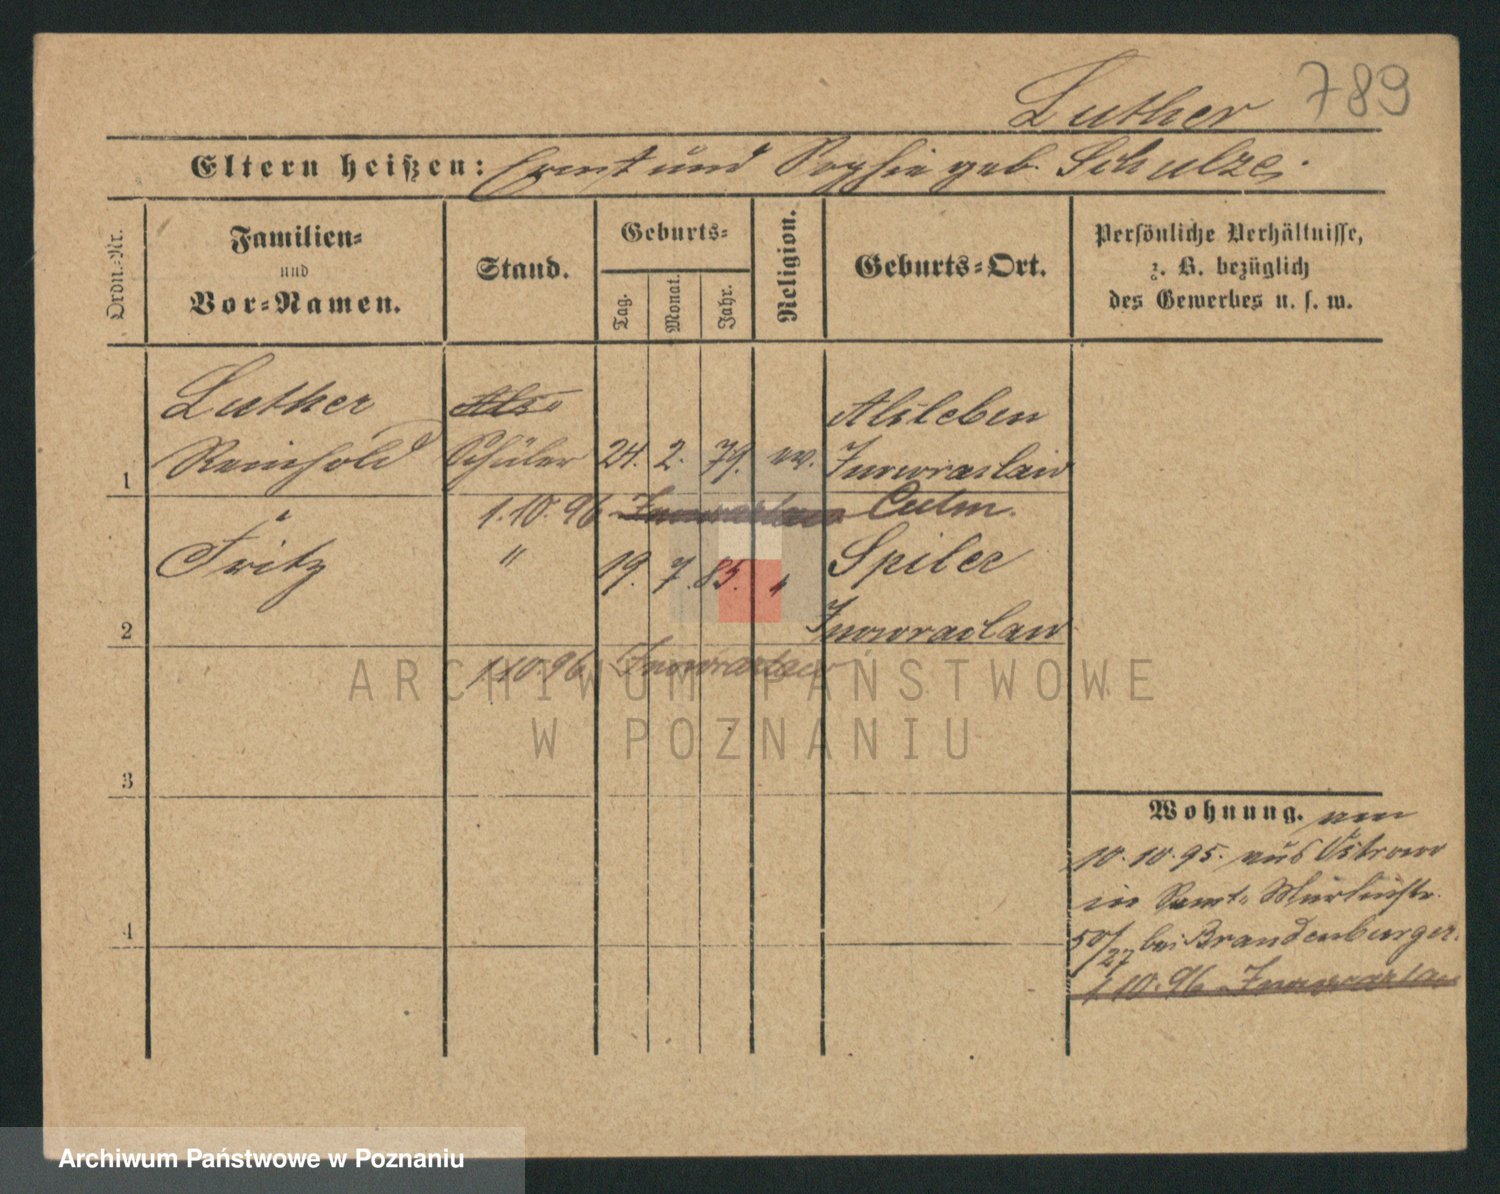 Luther 789
Eltern heißen: Ernst und Sophie geb. Schulze.
Ordn.-Nr.
Familien-
und
Vor-Namen.
Stand.
Geburts-
Tag.
Monat.
Jahr.
Religion.
Geburts-Ort.
Persönliche Verhältnisse,
z. B. bezüglich
des Gewerbes u. s. w.
Luther Alsleben
1 Reinhold Schüler 24. 2. 79. ev. Inowraclaw
1.10.96 Inowraclaw Culm.
Fritz " 19. 7. 85. " Spiler
2 Inowraclaw
1.10.96 Inowraclaw
3
4
Wohnung.
10.10.95. aus Ostrowo
in
50/27 bei Brandenburger.
1.10.96 Inowraclaw
ARCHIWUM PAŃSTWOWE
W POZNANIU
Archiwum Państwowe w Poznaniu